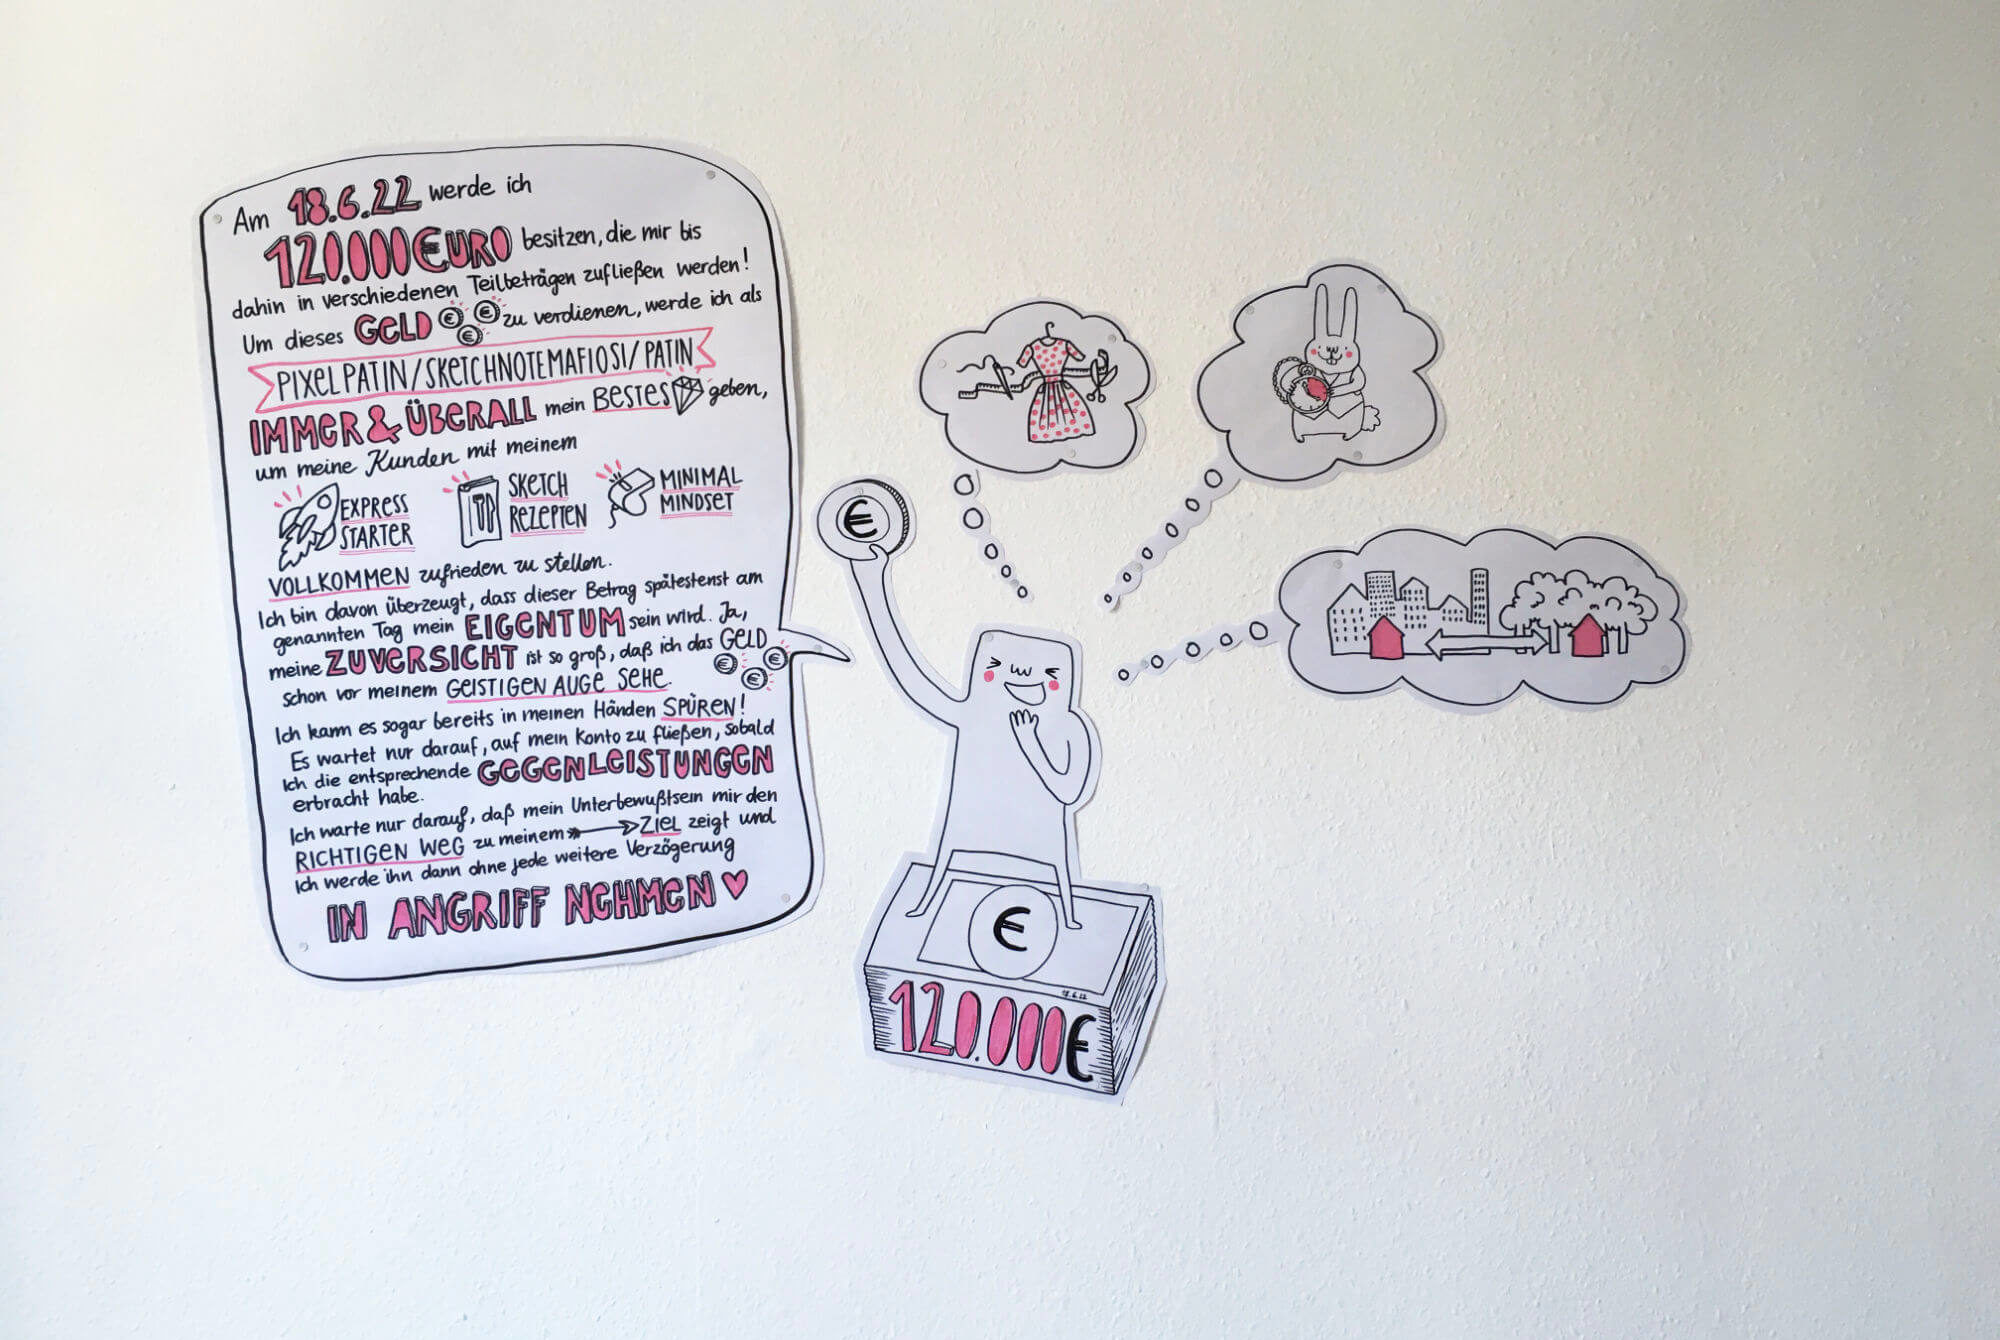 Am 18.6.22 werde ich
120.000 €URO besitzen, die mir bis
dahin in verschiedenen Teilbeträgen zufließen werden!
Um dieses GELD € € € zu verdienen, werde ich als
PIXELPATIN/SKETCHNOTEMAFIOSI/PATIN
IMMER & ÜBERALL mein BESTES geben,
um meine Kunden mit meinem
EXPRESS
STARTER
SKETCH
REZEPTEN
MINIMAL
MINDSET
VOLLKOMMEN zufrieden zu stellen.
Ich bin davon überzeugt, dass dieser Betrag spätestenst am
genannten Tag mein EIGENTUM sein wird. Ja,
meine ZUVERSICHT ist so groß, daß ich das GELD
€ € €
schon vor meinem GEISTIGEN AUGE SEHE.
Ich kann es sogar bereits in meinen Händen SPÜREN!
Es wartet nur darauf, auf mein Konto zu fließen, sobald
Ich die entsprechende GEGENLEISTUNGEN
erbracht habe.
Ich warte nur darauf, daß mein Unterbewußtsein mir den
RICHTIGEN WEG zu meinem ZIEL zeigt und
Ich werde ihn dann ohne jede weitere Verzögerung
IN ANGRIFF NEHMEN
€
€
18.6.22
120.000€